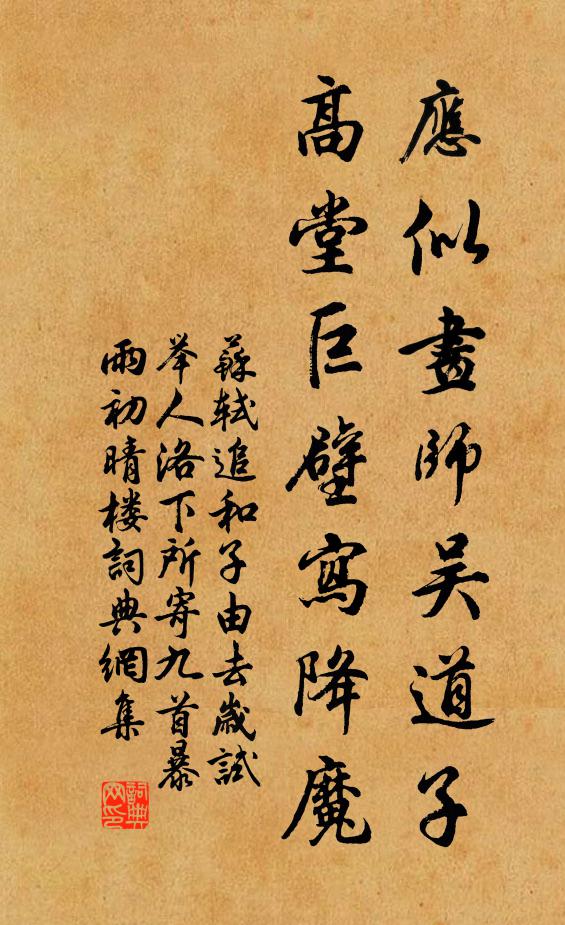 應似畫師吴道子
高堂巨壁寫降魔
蘇軾追和子由去歲試
举人洛下所寄九首暴
雨初晴楼詞典網集
詞典网印